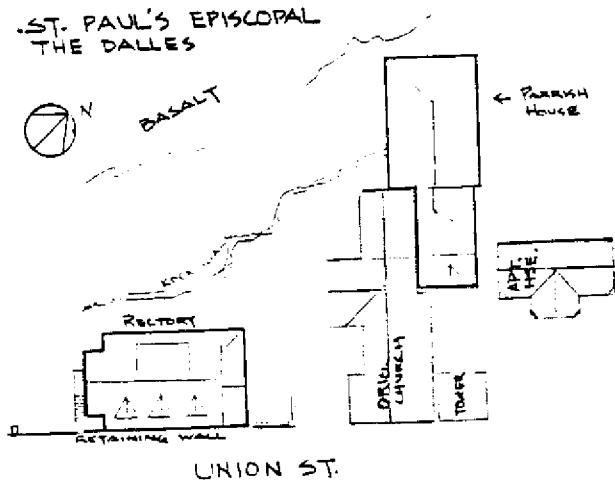 ST. PAUL'S EPISCOPAL
THE DALLES
N
BASALT
← PARRISH
HOUSE
APT.
HSE.
RECTORY
ORIG.
CHURCH
TOWER
RETAINING WALL
UNION ST.